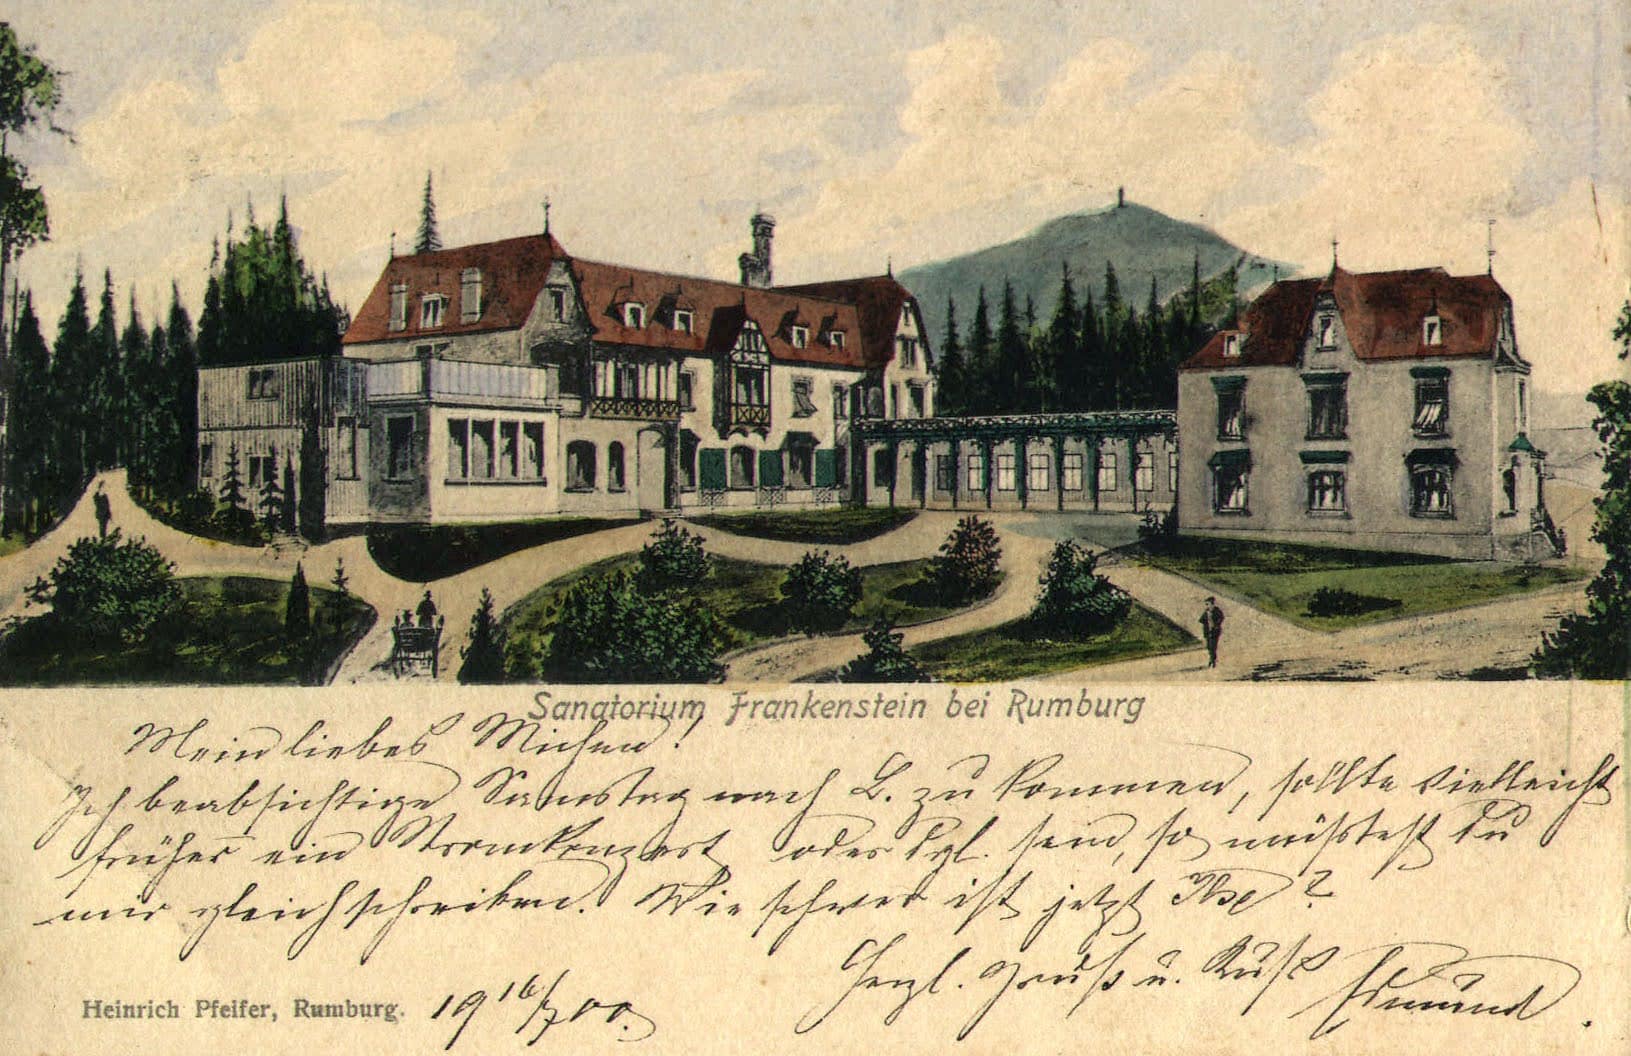 Sanatorium Frankenstein bei Rumburg
Mein liebes
Ich beabsichtige Samstag nach L. zu kommen, sollte vielleicht
früher ein oder dgl. sein, so müsstest Du
mir gleich schreiben. Wie schwer ist jetzt Ilse?
Herzl. Gruß u. Kuß Edmund.
Heinrich Pfeifer, Rumburg. 19 16/7 00.